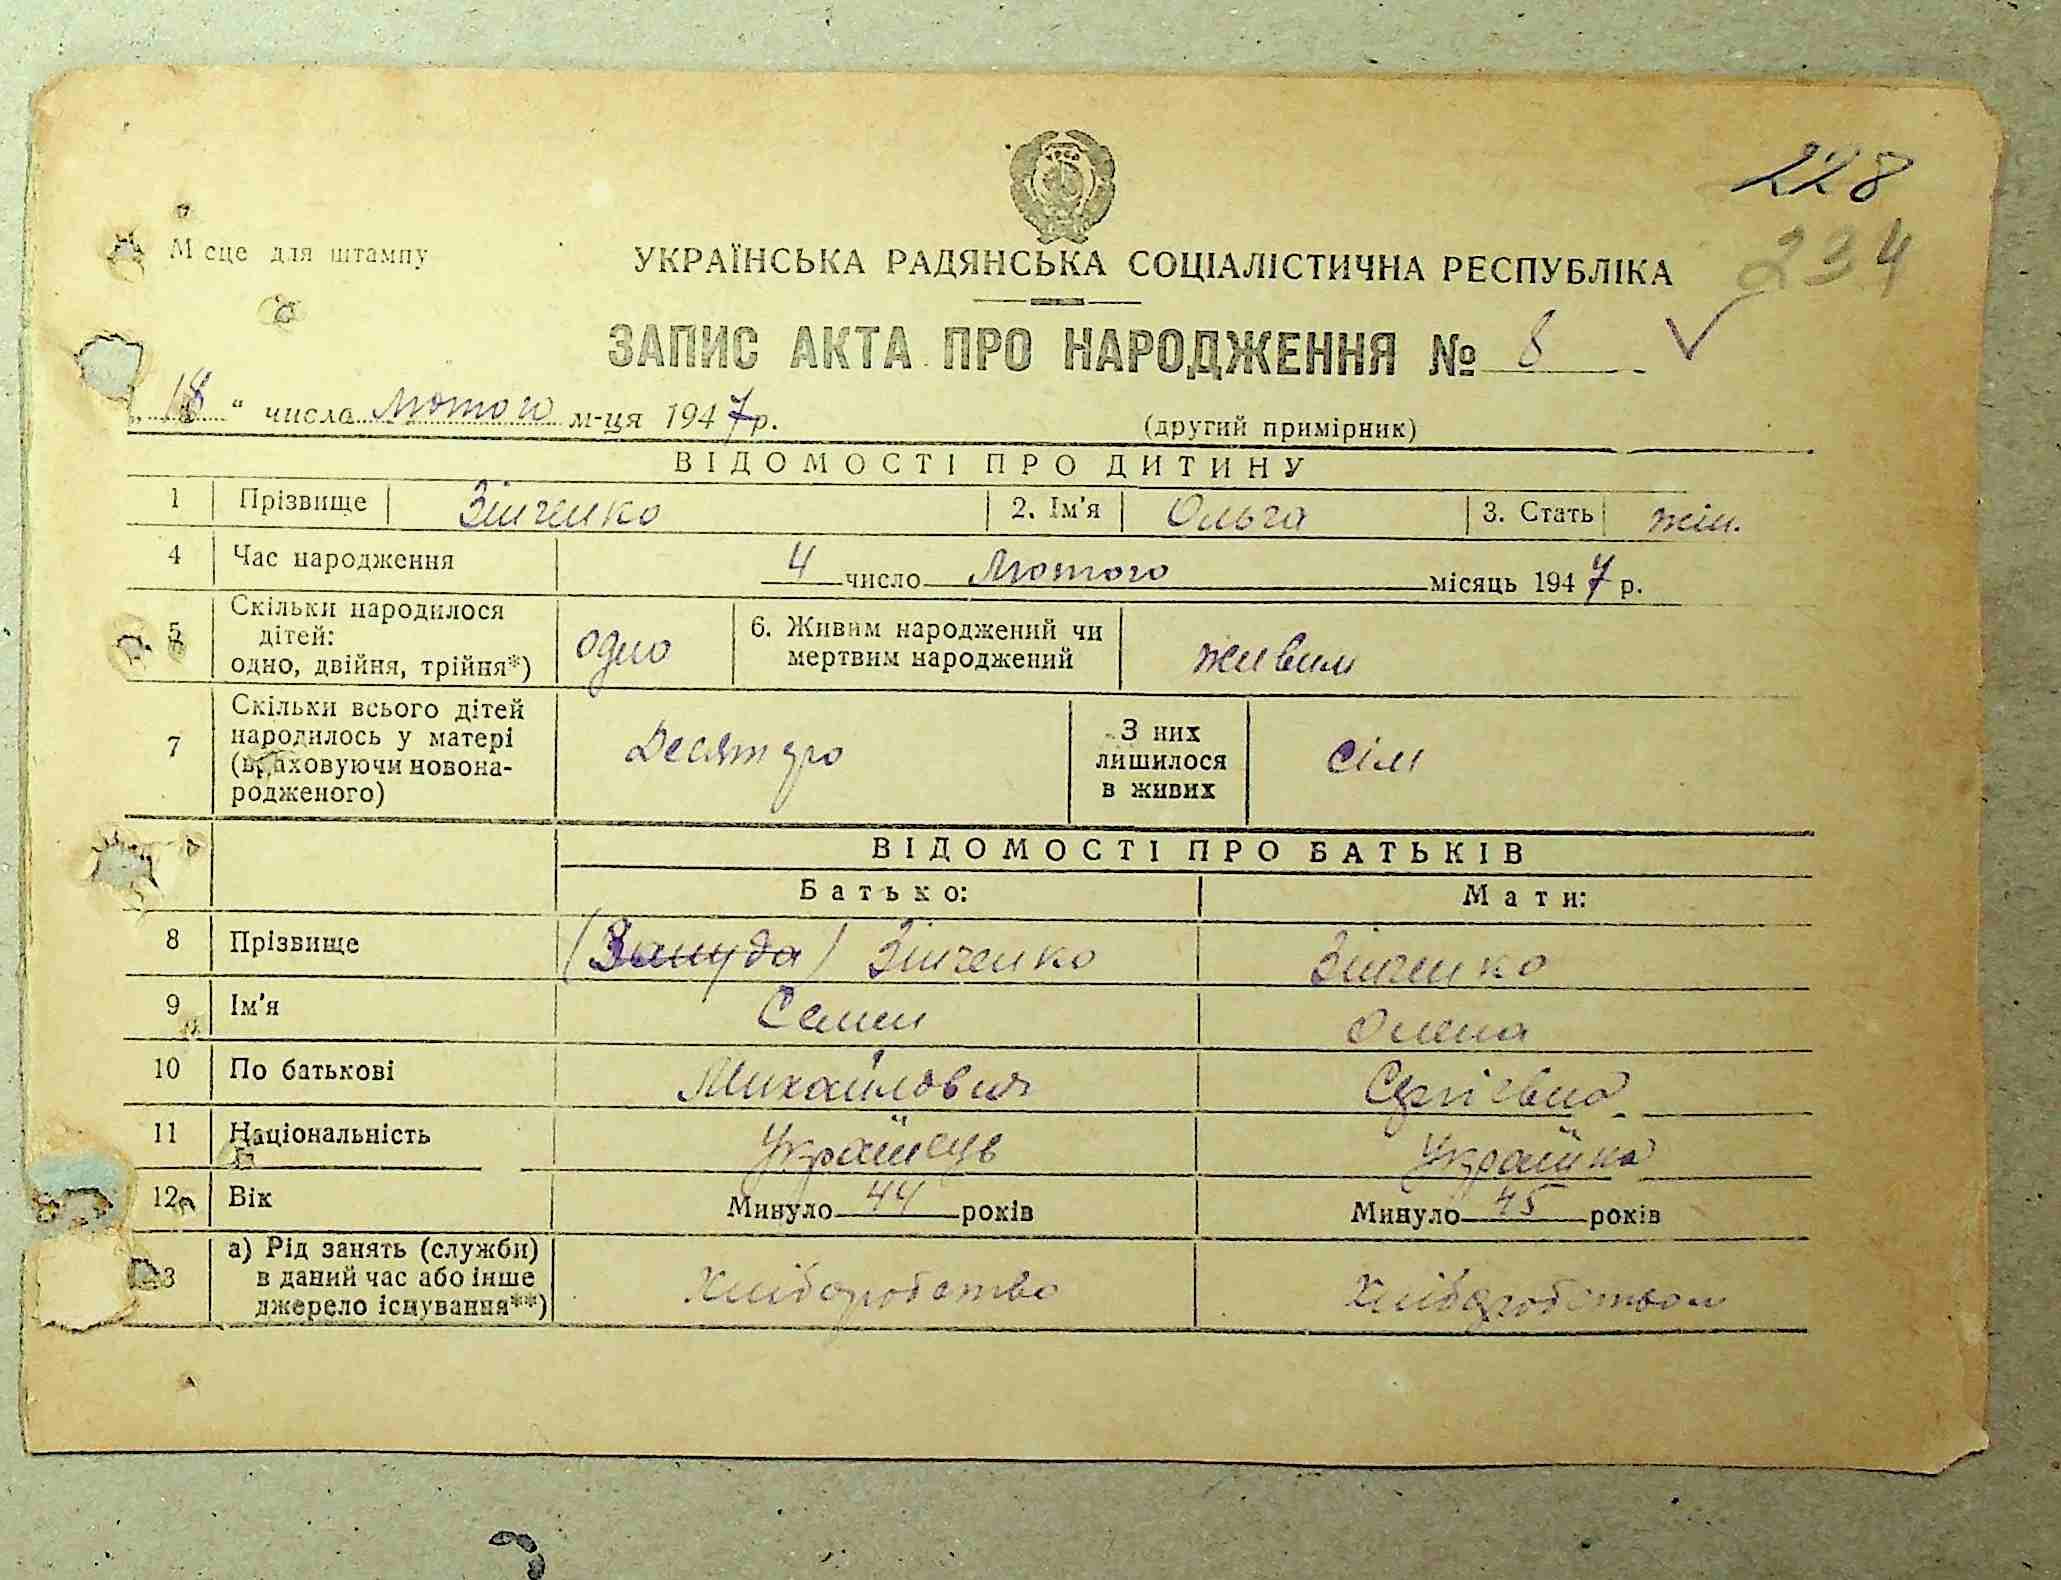 228
234
М сце для штампу
УКРАЇНСЬКА РАДЯНСЬКА СОЦІАЛІСТИЧНА РЕСПУБЛІКА
ЗАПИС АКТА ПРО НАРОДЖЕННЯ № 8
„18“ числа лютого м-ця 1947 р.
(другий примірник)
ВІДОМОСТІ ПРО ДИТИНУ
1 Прізвище Зінченко 2. Ім'я Ольга 3. Стать жін.
4 Час народження 4 число Лютого місяць 1947 р.
5 Скільки народилося дітей: одно, двійня, трійня*) одно 6. Живим народжений чи мертвим народжений живим
7 Скільки всього дітей народилось у матері (враховуючи новонародженого) Десятеро З них лишилося в живих сім
ВІДОМОСТІ ПРО БАТЬКІВ
Батько: Мати:
8 Прізвище (Зануда) Зінченко Зінченко
9 Ім'я Семен Олена
10 По батькові Михайлович Сергіївна
11 Національність Українець Українка
12 Вік Минуло 44 років Минуло 45 років
13 а) Рід занять (служби) в даний час або інше джерело існування**) Хліборобство Хліборобством